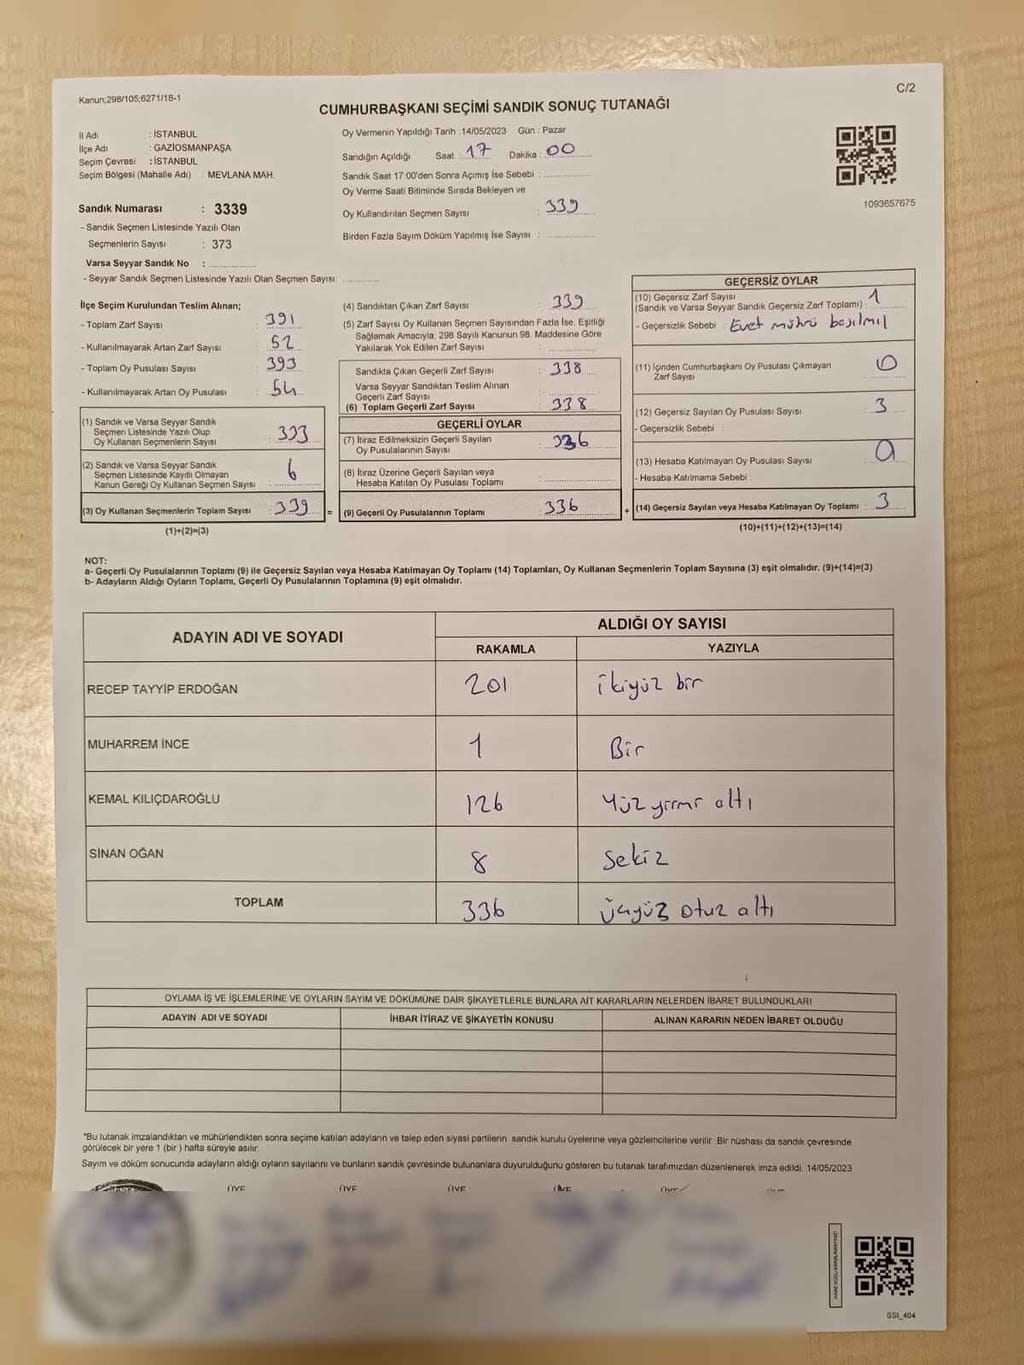 Kanun;298/105;6271/18-1
C/2
CUMHURBAŞKANI SEÇİMİ SANDIK SONUÇ TUTANAĞI
İl Adı : İSTANBUL
İlçe Adı : GAZİOSMANPAŞA
Seçim Çevresi : İSTANBUL
Seçim Bölgesi (Mahalle Adı) : MEVLANA MAH.
Sandık Numarası : 3339
- Sandık Seçmen Listesinde Yazılı Olan
Seçmenlerin Sayısı : 373
Varsa Seyyar Sandık No :
- Seyyar Sandık Seçmen Listesinde Yazılı Olan Seçmen Sayısı:
Oy Vermenin Yapıldığı Tarih :14/05/2023 Gün : Pazar
Sandığın Açıldığı Saat : 17 Dakika : 00
Sandık Saat 17:00'den Sonra Açımış İse Sebebi :
Oy Verme Saati Bitiminde Sırada Bekleyen ve
Oy Kullandırılan Seçmen Sayısı : 339
Birden Fazla Sayım Döküm Yapılmış İse Sayısı :
1093657675
İlçe Seçim Kurulundan Teslim Alınan;
- Toplam Zarf Sayısı : 391
- Kullanılmayarak Artan Zarf Sayısı : 52
- Toplam Oy Pusulası Sayısı : 393
- Kullanılmayarak Artan Oy Pusulası : 54
(1) Sandık ve Varsa Seyyar Sandık
Seçmen Listesinde Yazılı Olup
Oy Kullanan Seçmenlerin Sayısı : 333
(2) Sandık ve Varsa Seyyar Sandık
Seçmen Listesinde Kayıtlı Olmayan
Kanun Gereği Oy Kullanan Seçmen Sayısı : 6
(3) Oy Kullanan Seçmenlerin Toplam Sayısı : 339 =
(1)+(2)=(3)
(4) Sandıktan Çıkan Zarf Sayısı : 339
(5) Zarf Sayısı Oy Kullanan Seçmen Sayısından Fazla İse, Eşitliği
Sağlamak Amacıyla, 298 Sayılı Kanunun 98. Maddesine Göre
Yakılarak Yok Edilen Zarf Sayısı :
Sandıkta Çıkan Geçerli Zarf Sayısı : 338
Varsa Seyyar Sandıktan Teslim Alınan
Geçerli Zarf Sayısı :
(6) Toplam Geçerli Zarf Sayısı : 338
GEÇERLİ OYLAR
(7) İtiraz Edilmeksizin Geçerli Sayılan
Oy Pusulalarının Sayısı : 336
(8) İtiraz Üzerine Geçerli Sayılan veya
Hesaba Katılan Oy Pusulası Toplamı :
(9) Geçerli Oy Pusulalarının Toplamı : 336 +
GEÇERSİZ OYLAR
(10) Geçersiz Zarf Sayısı 1
(Sandık ve Varsa Seyyar Sandık Geçersiz Zarf Toplamı) :
- Geçersizlik Sebebi : Evet mührü basılmıl
(11) İçinden Cumhurbaşkanı Oy Pusulası Çıkmayan
Zarf Sayısı : 0
(12) Geçersiz Sayılan Oy Pusulası Sayısı : 3
- Geçersizlik Sebebi :
(13) Hesaba Katılmayan Oy Pusulası Sayısı : 0
- Hesaba Katılmama Sebebi :
(14) Geçersiz Sayılan veya Hesaba Katılmayan Oy Toplamı : 3
(10)+(11)+(12)+(13)=(14)
NOT:
a- Geçerli Oy Pusulalarının Toplamı (9) ile Geçersiz Sayılan veya Hesaba Katılmayan Oy Toplamı (14) Toplamları, Oy Kullanan Seçmenlerin Toplam Sayısına (3) eşit olmalıdır. (9)+(14)=(3)
b- Adayların Aldığı Oyların Toplamı, Geçerli Oy Pusulalarının Toplamına (9) eşit olmalıdır.
ADAYIN ADI VE SOYADI
ALDIĞI OY SAYISI
RAKAMLA YAZIYLA
RECEP TAYYİP ERDOĞAN 201 ikiyüz bir
MUHARREM İNCE 1 Bir
KEMAL KILIÇDAROĞLU 126 Yüz yirmi altı
SİNAN OĞAN 8 Sekiz
TOPLAM 336 üçyüz otuz altı
OYLAMA İŞ VE İŞLEMLERİNE VE OYLARIN SAYIM VE DÖKÜMÜNE DAİR ŞİKAYETLERLE BUNLARA AİT KARARLARIN NELERDEN İBARET BULUNDUKLARI
ADAYIN ADI VE SOYADI İHBAR İTİRAZ VE ŞİKAYETİN KONUSU ALINAN KARARIN NEDEN İBARET OLDUĞU
*Bu tutanak imzalandıktan ve mühürlendikten sonra seçime katılan adayların ve talep eden siyasi partilerin sandık kurulu üyelerine veya gözlemcilerine verilir. Bir nüshası da sandık çevresinde
görülecek bir yere 1 (bir ) hafta süreyle asılır.
Sayım ve döküm sonucunda adayların aldığı oyların sayılarını ve bunların sandık çevresinde bulunanlara duyurulduğunu gösteren bu tutanak tarafımızdan düzenlenerek imza edildi. 14/05/2023
ÜYE ÜYE ÜYE ÜYE ÜYE
SSI_404